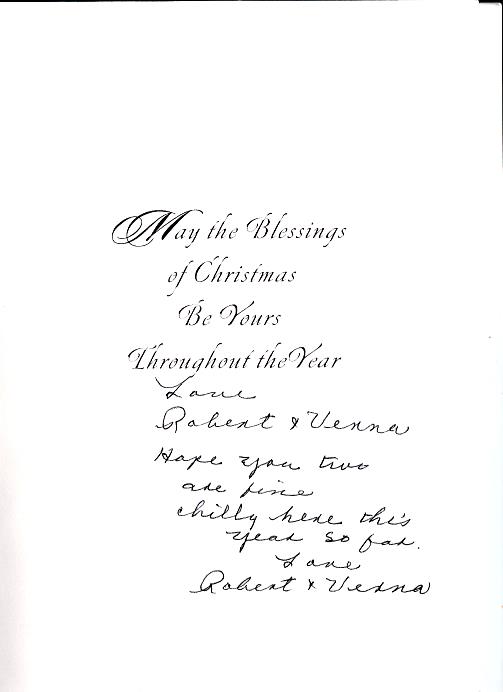 May the Blessings
of Christmas
Be Yours
Throughout the Year
Love
Robert & Verna
Hope you two
are fine
chilly here this
year so far.
Love
Robert & Verna